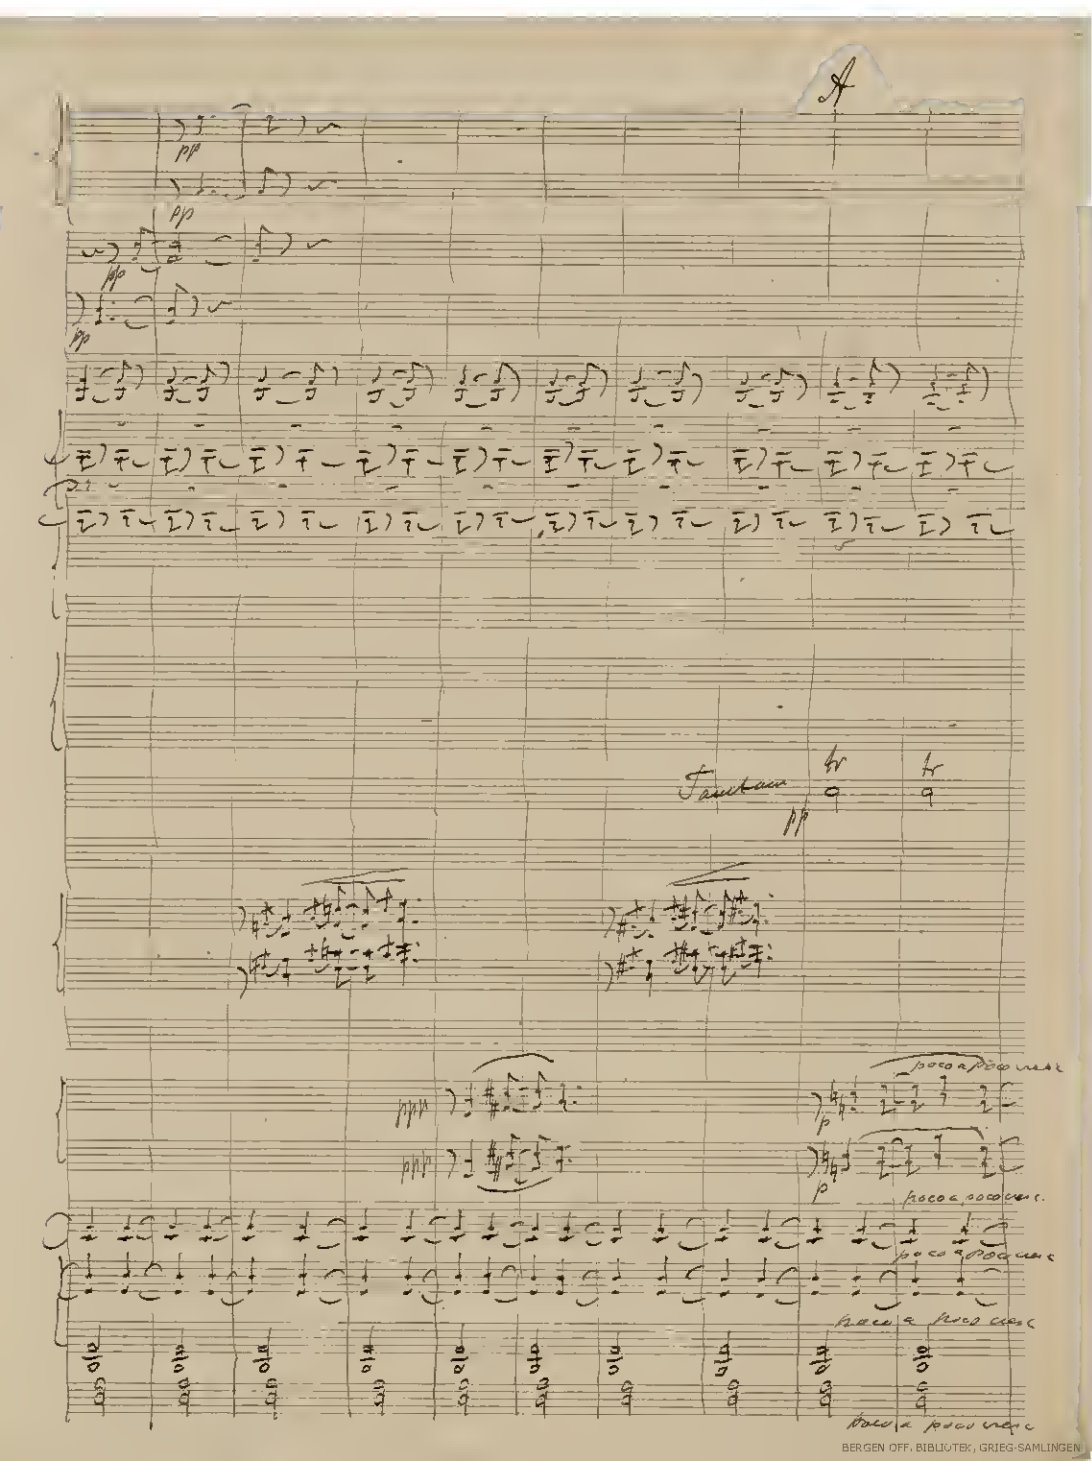 A
pp
pp
pp
pp
tr tr
Tamtam
pp
poco a poco cresc
ppp
p
ppp
p
poco a poco cresc.
poco a poco cresc
poco a poco cresc
poco a poco cresc
BERGEN OFF. BIBLIOTEK, GRIEG-SAMLINGEN